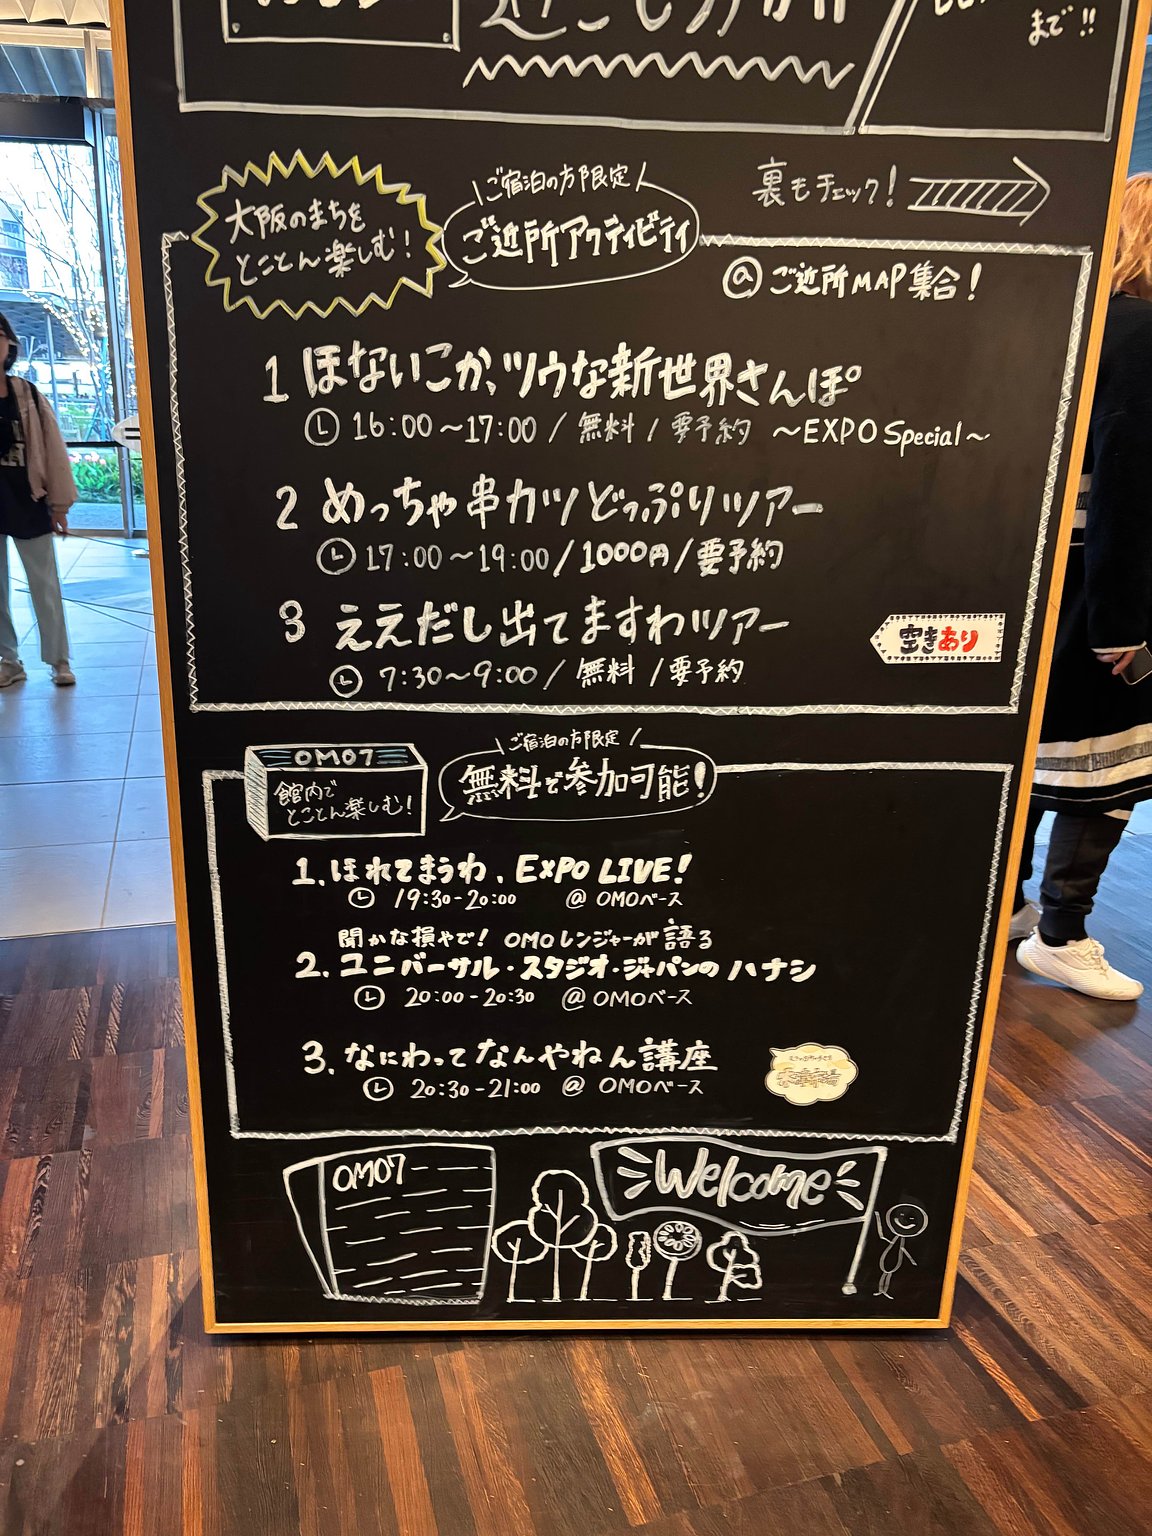 まで!!
大阪のまちを
とことん楽しむ!
ご宿泊の方限定
ご近所アクティビティ
裏もチェック!
@ご近所MAP集合!
1 ほないこか、ツウな新世界さんぽ
16:00〜17:00 / 無料 / 要予約 〜EXPO Special〜
2 めっちゃ串カツどっぷりツアー
17:00〜19:00/1000円/要予約
3 ええだし出てますわツアー
7:30〜9:00/ 無料 /要予約
空きあり
OMO7
館内で
とことん楽しむ!
ご宿泊の方限定
無料で参加可能!
1. ほれてまうわ、EXPO LIVE!
19:30-20:00 @ OMOベース
聞かな損やで! OMOレンジャーが語る
2. ユニバーサル・スタジオ・ジャパンのハナシ
20:00-20:30 @ OMOベース
3. なにわってなんやねん講座
20:30-21:00 @ OMOベース
OMO7
Welcome